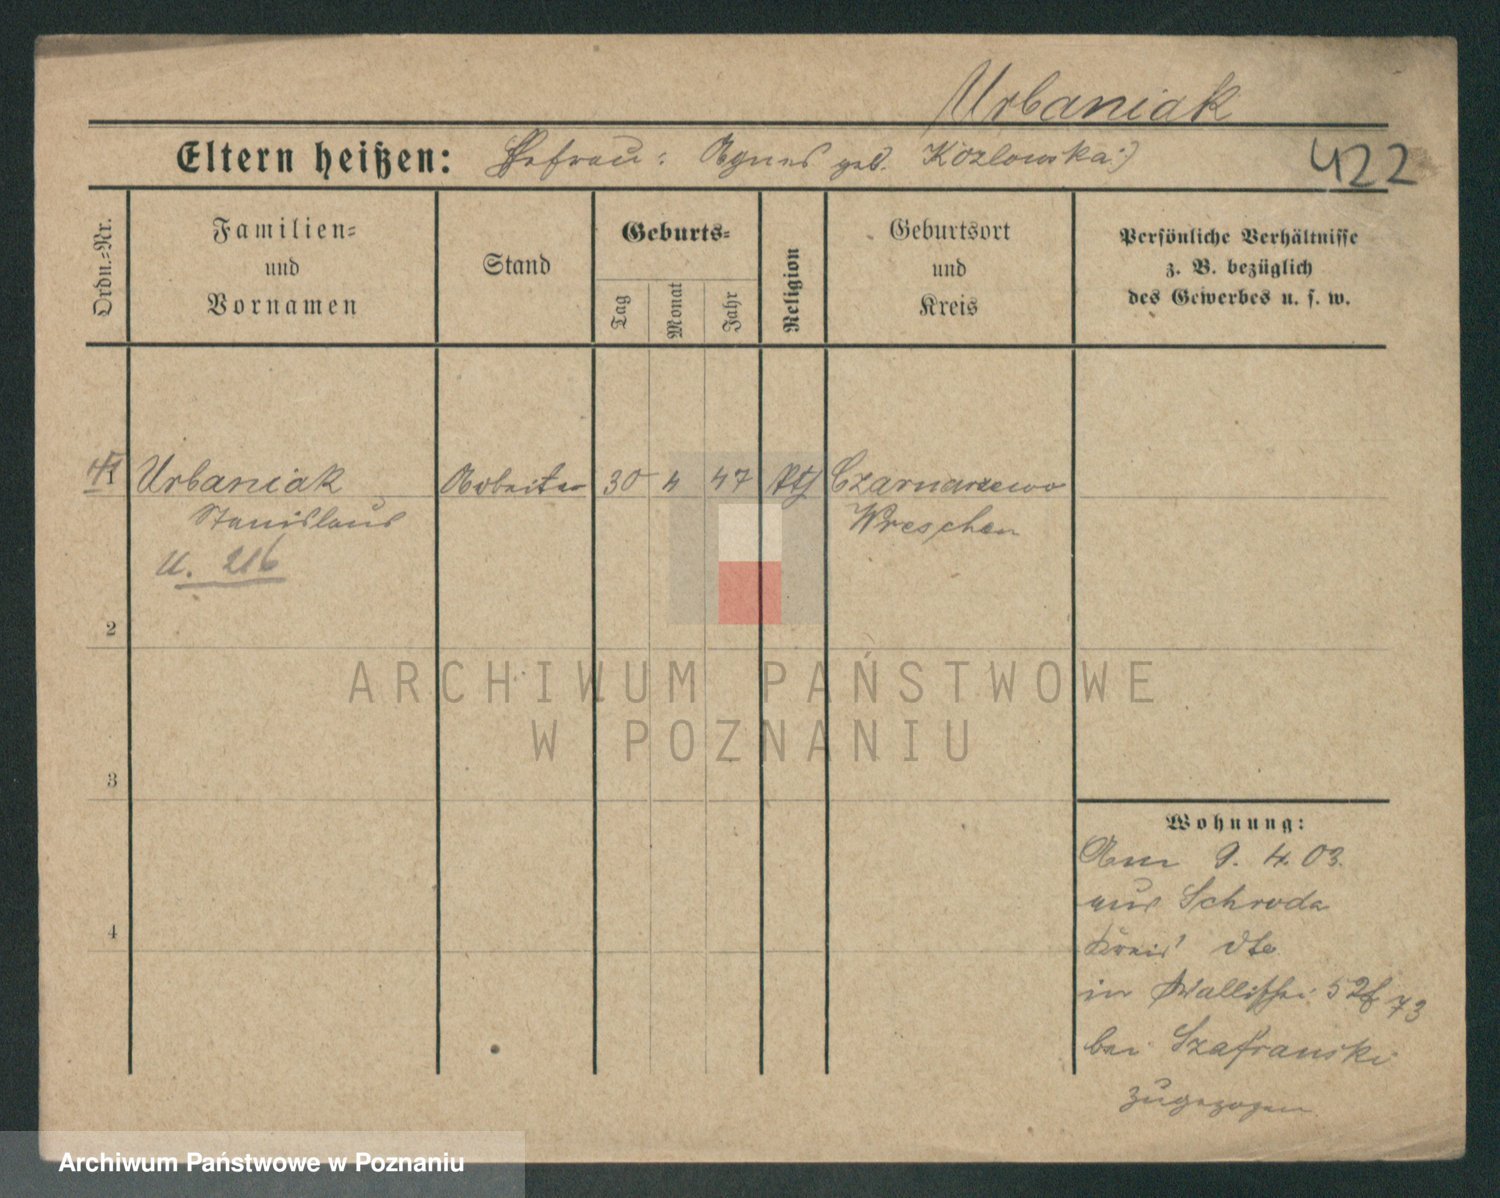 Urbaniak
Eltern heißen: Ehefrau: Agnes geb. Kozlowska:)
422
Ordn.-Nr.
Familien-
und
Vornamen
Stand
Geburts-
Tag
Monat
Jahr
Religion
Geburtsort
und
Kreis
Persönliche Verhältnisse
z. B. bezüglich
des Gewerbes u. s. w.
1
Urbaniak Arbeiter 30 4 47 Czarnarzewo
Stanislaus Wreschen
U. 216
2
ARCHIWUM PAŃSTWOWE
W POZNANIU
3
Wohnung:
Am 9. 4. 03.
aus Schroda
4
Kreis dto
in Wallischei 73
bei Szafranski
zugezogen
Archiwum Państwowe w Poznaniu